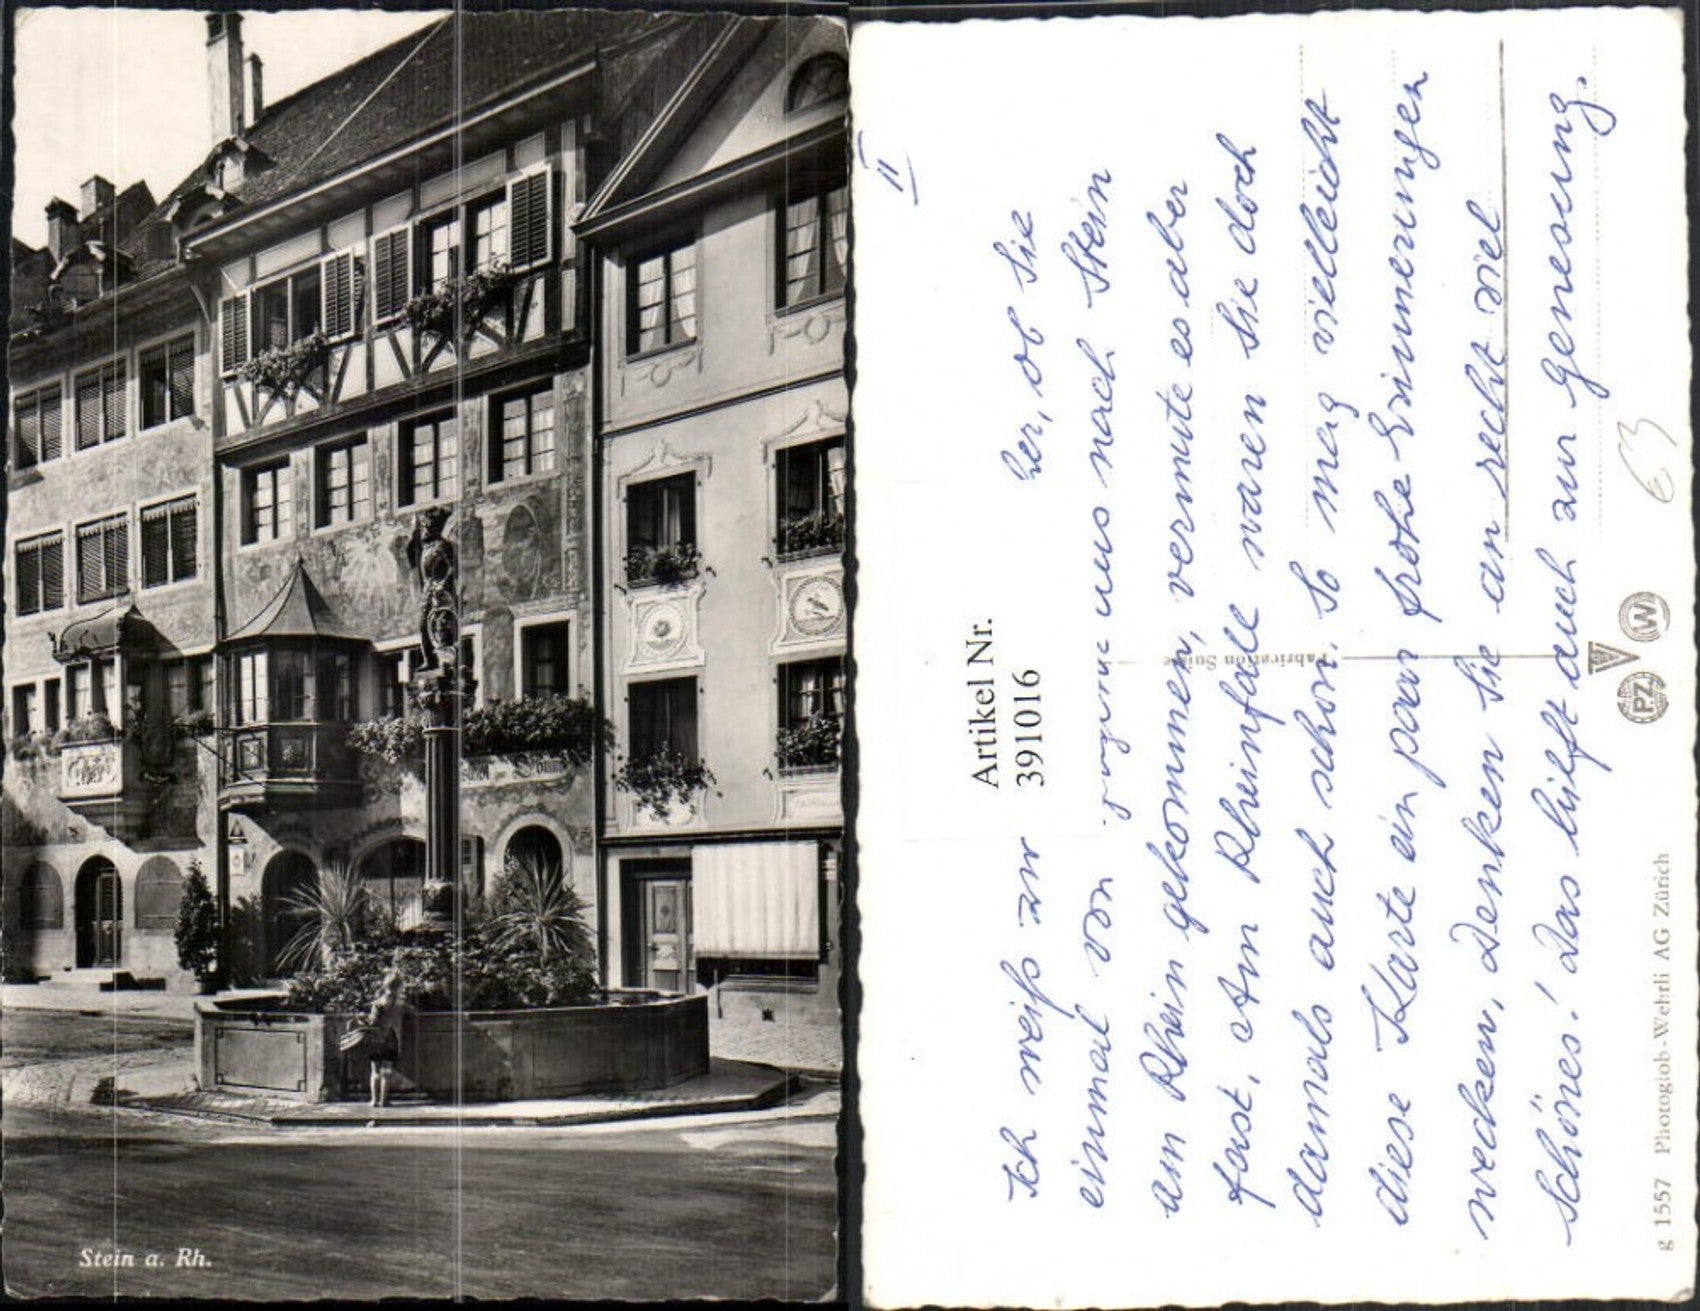 Stein a. Rh.
II
Ich weiß zur
ber, ob Sie
einmal von
uns nach Stein
am Rhein gekommen, vermute es aber
fast. Am Rheinfall waren Sie doch
damals auch schon. So mag vielleicht
diese Karte ein paar frohe Erinnerungen
wecken, Denken Sie an recht viel
Schönes! Das hilft auch zur Genesung.
Artikel Nr.
391016
Fabrication Suisse
PZ
W
63
g 1557 Photoglob-Wehrli AG Zürich